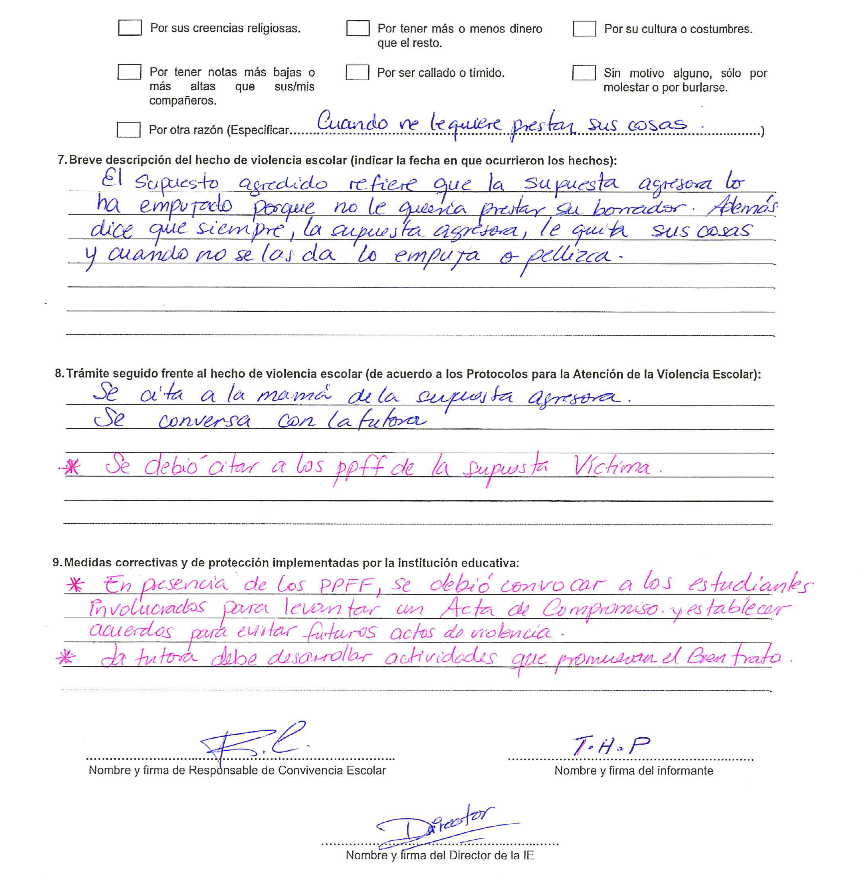 Por sus creencias religiosas.
Por tener más o menos dinero que el resto.
Por su cultura o costumbres.
Por tener notas más bajas o más altas que sus/mis compañeros.
Por ser callado o tímido.
Sin motivo alguno, sólo por molestar o por burlarse.
Por otra razón (Especificar....Cuando no le quiere prestar sus cosas.............)
7. Breve descripción del hecho de violencia escolar (indicar la fecha en que ocurrieron los hechos):
El supuesto agredido refiere que la supuesta agresora lo
ha empujado porque no le quería prestar su borrador. Además
dice que siempre, la supuesta agresora, le quita sus cosas
y cuando no se las da lo empuja o pellizca.
8. Trámite seguido frente al hecho de violencia escolar (de acuerdo a los Protocolos para la Atención de la Violencia Escolar):
Se cita a la mamá de la supuesta agresora.
Se conversa con la tutora
* Se debió citar a los ppff de la supuesta Víctima.
9. Medidas correctivas y de protección implementadas por la Institución educativa:
* En presencia de los PPFF, se debió convocar a los estudiantes
involucrados para levantar un Acta de Compromiso y establecer
acuerdos para evitar futuros actos de violencia.
* La tutora debe desarrollar actividades que promuevan el Buen trato.
F.C.
T.H.P
Nombre y firma de Responsable de Convivencia Escolar
Nombre y firma del informante
Director
Nombre y firma del Director de la IE